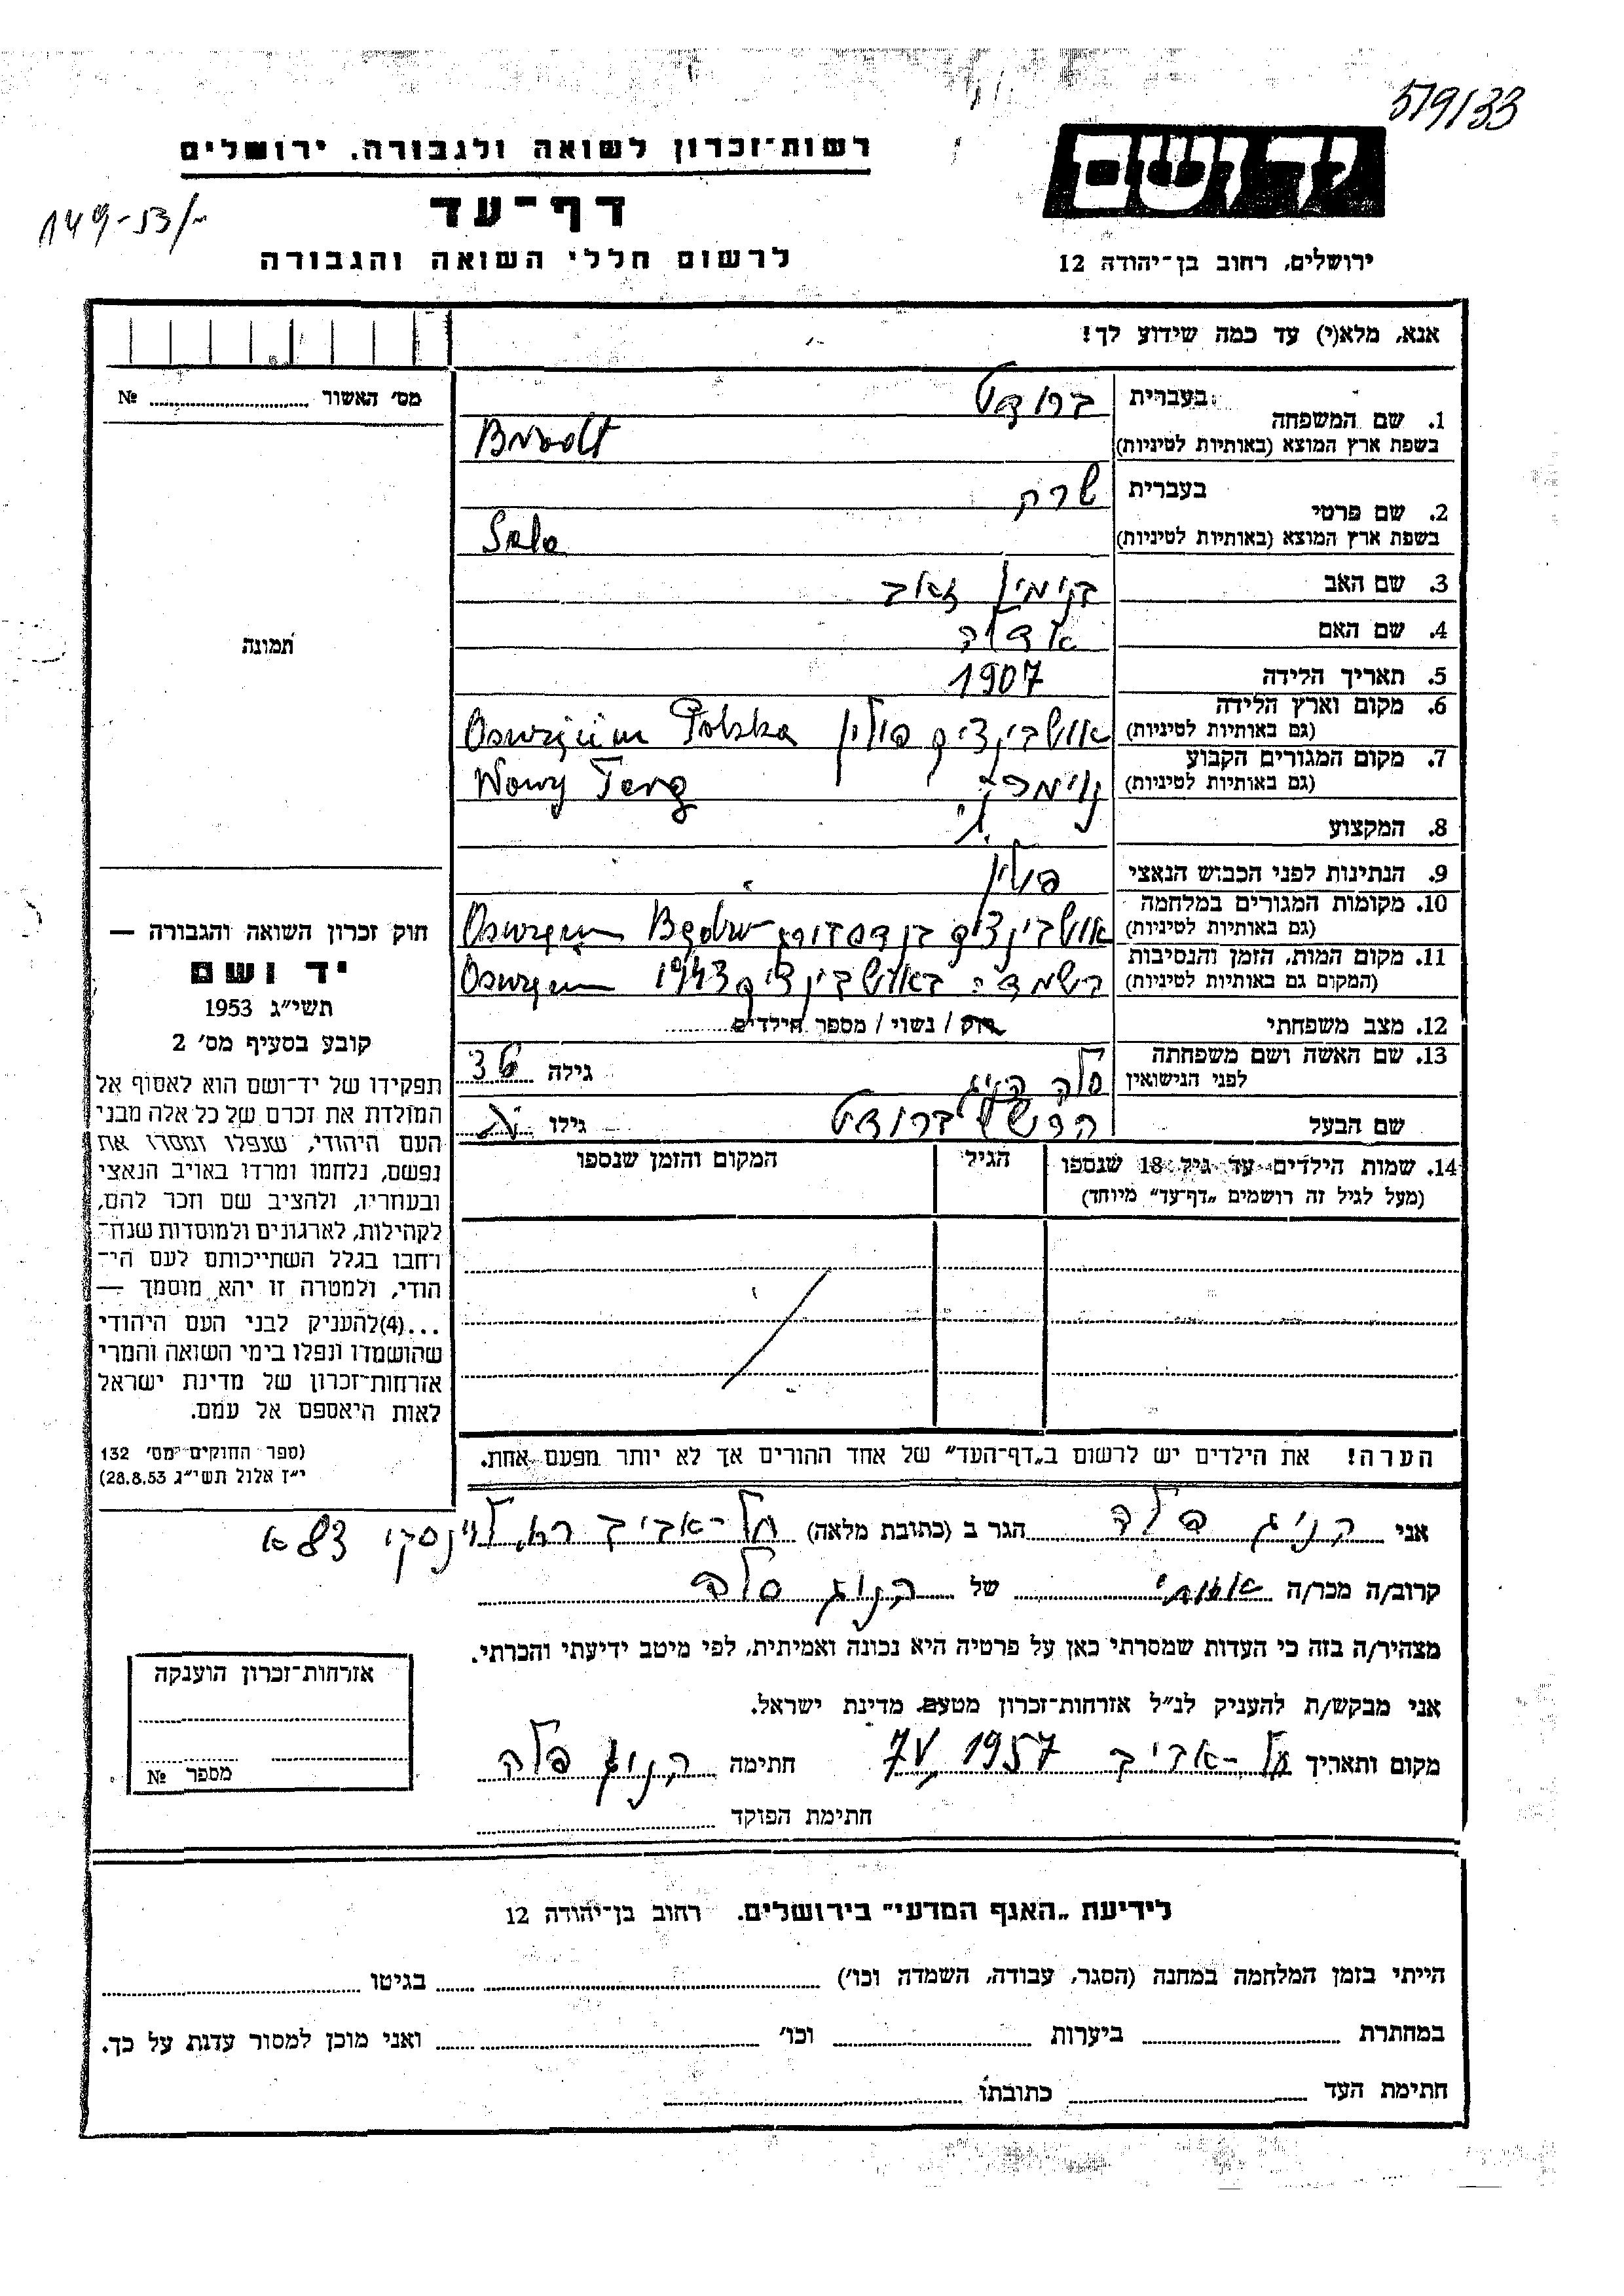 579/33
יד ושם
ירושלים, רחוב בן־יהודה 12
רשות־זכרון לשואה ולגבורה, ירושלים
דף־עד
לרשום חללי השואה והגבורה
149-53/
אנא, מלא(י) עד כמה שידוע לך!
מס׳ האשור № 
1. שם המשפחה
בעברית ברודט
בשפת ארץ המוצא (באותיות לטיניות)
2. שם פרטי
בעברית שרה
בשפת ארץ המוצא (באותיות לטיניות) Sala
3. שם האב בנימין זאב
4. שם האם
5. תאריך הלידה 1907
6. מקום וארץ הלידה
(גם באותיות לטיניות) אושבינצים פולין Polska
7. מקום המגורים הקבוע
(גם באותיות לטיניות) Nowy Targ
8. המקצוע
9. הנתינות לפני הכבוש הנאצי פולין
10. מקומות המגורים במלחמה
(גם באותיות לטיניות) אושבינצים בנדסבורג
11. מקום המות, הזמן והנסיבות
(המקום גם באותיות לטיניות) באושבינצים 1943
12. מצב משפחתי רוק / נשוי / מספר הילדים
13. שם האשה ושם משפחתה
לפני הנישואין סלה קניג גילה 36
שם הבעל הרש ברודט גילו
14. שמות הילדים עד גיל 18 שנספו
(מעל לגיל זה רושמים „דף־עד״ מיוחד)
הגיל
המקום והזמן שנספו
הערה! את הילדים יש לרשום ב„דף־העד״ של אחד ההורים אך לא יותר מפעם אחת.
תמונה
חוק זכרון השואה והגבורה —
יד ושם
תשי״ג 1953
קובע בסעיף מס׳ 2
תפקידו של יד־ושם הוא לאסוף אל
המולדת את זכרם של כל אלה מבני
העם היהודי, שנפלו ומסרו את
נפשם, נלחמו ומרדו באויב הנאצי
ובעוזריו, ולהציב שם וזכר להם,
לקהילות, לארגונים ולמוסדות שנח־
רחבו בגלל השתייכותם לעם הי־
הודי, ולמטרה זו יהא מוסמך —
...(4)להעניק לבני העם היהודי
שהושמדו ונפלו בימי השואה והמרי
אזרחות־זכרון של מדינת ישראל
לאות היאספם אל עמם.
(ספר החוקים מס׳ 132
י״ז אלול תשי״ג 28.8.53)
אני קניג פלה הגר ב (כתובת מלאה) תל-אביב לוינסקי 83 א
קרוב/ה מכר/ה אחותי של קניג סלה
מצהיר/ה בזה כי העדות שמסרתי כאן על פרטיה היא נכונה ואמיתית, לפי מיטב ידיעתי והכרתי.
אני מבקש/ת להעניק לנ״ל אזרחות־זכרון מטעם מדינת ישראל.
מקום ותאריך תל-אביב 7 V 1957 חתימה קניג פלה
חתימת הפוקד
אזרחות־זכרון הוענקה
מספר №
לידיעת „האגף המדעי״ בירושלים, רחוב בן־יהודה 12
הייתי בזמן המלחמה במחנה (הסגר, עבודה, השמדה וכו׳) בגיטו
במחתרת ביערות וכו׳ ואני מוכן למסור עדות על כך.
חתימת העד כתובתו